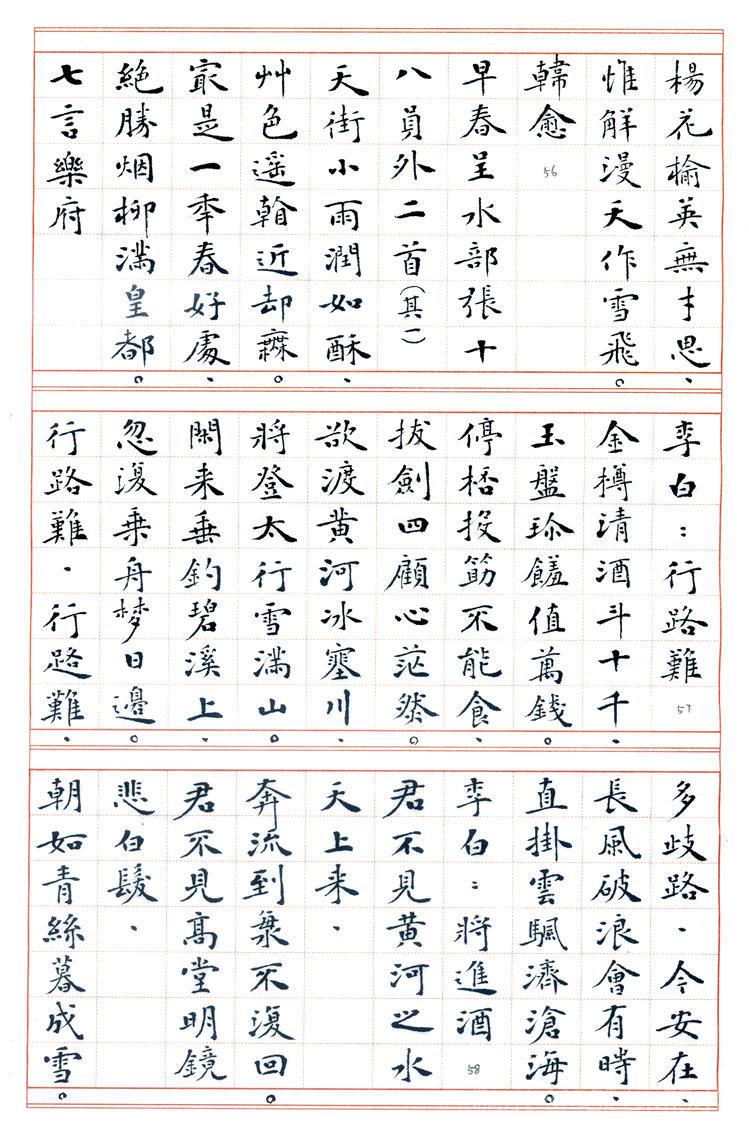 楊花榆英無才思、
惟解漫天作雪飛。
韓愈 56
早春呈水部張十
八員外二首(其一)
天街小雨潤如酥、
艸色遥看近却無。
最是一年春好處、
絕勝烟柳滿皇都。
七言樂府
李白:行路難 57
金樽清酒斗十千、
玉盤珎饈值萬錢。
停桮投筯不能食、
拔劍四顧心茫然。
欲渡黄河冰塞川、
將登太行雪滿山。
閑来垂釣碧溪上、
忽復乗舟梦日邊。
行路難.行路難、
多歧路.今安在、
長風破浪會有時、
直掛雲颿濟滄海。
李白:將進酒 58
君不見黄河之水
天上来.
奔流到海不復回。
君不見高堂明鏡
悲白髮.
朝如青絲暮成雪。